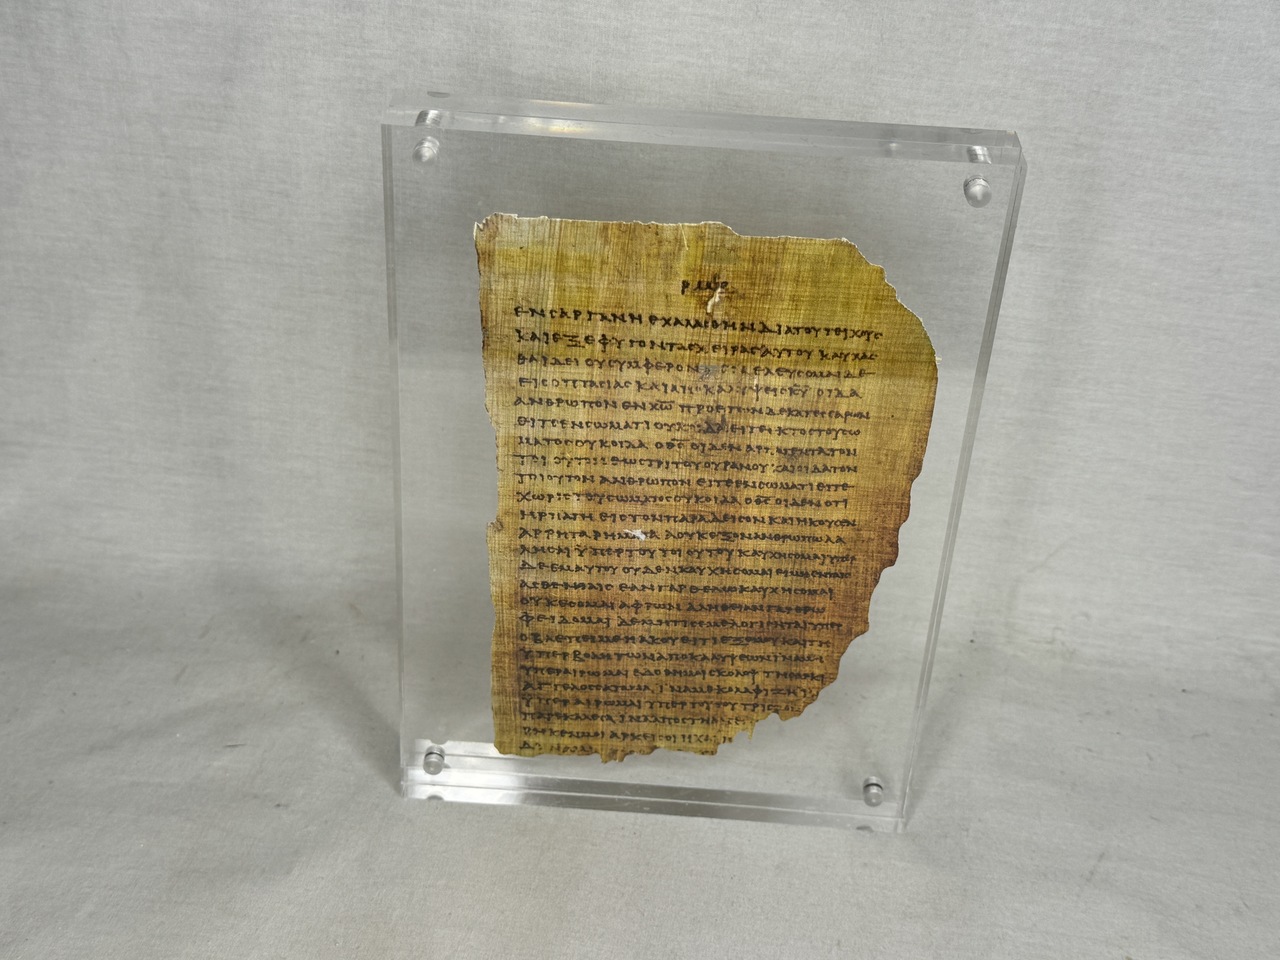 ΕΝ ϹΑΡΓΑΝΗ ΕΧΑΛΑϹΘΗΝ ΔΙΑ ΤΟΥ ΤΕΙΧΟΥϹ
ΚΑΙ ΕΞΕΦΥΓΟΝ ΤΑϹ ΧΕΙΡΑϹ ΑΥΤΟΥ ΚΑΥΧΑϹ
ΘΑΙ ΔΕΙ ΟΥ ϹΥΜΦΕΡΟΝ ΕΛΕΥϹΟΜΑΙ ΔΕ
ΕΙϹ ΟΠΤΑϹΙΑϹ ΚΑΙ ΑΠΟΚΑΛΥΨΕΙϹ Κ̅Υ̅ ΟΙΔΑ
ΑΝΘΡΩΠΟΝ ΕΝ Χ̅Ω̅ ΠΡΟ ΕΤΩΝ ΔΕΚΑΤΕϹϹΑΡΩΝ
ΕΙΤΕ ΕΝ ϹΩΜΑΤΙ ΟΥΚ ΕΙΤΕ ΕΚΤΟϹ ΤΟΥ ϹΩ
ΜΑΤΟϹ ΟΥΚ ΟΙΔΑ Ο Θ̅Ϲ̅ ΟΙΔΕΝ ΤΟΝ
ΤΟΙΟΥΤΟΝ ΕΩϹ ΤΡΙΤΟΥ ΟΥΡΑΝΟΥ ΚΑΙ ΟΙΔΑ ΤΟΝ
ΤΟΙΟΥΤΟΝ ΑΝΘΡΩΠΟΝ ΕΙΤΕ ΕΝ ϹΩΜΑΤΙ ΕΙΤΕ
ΧΩΡΙϹ ΤΟΥ ϹΩΜΑΤΟϹ ΟΥΚ ΟΙΔΑ Ο Θ̅Ϲ̅ ΟΙΔΕΝ ΟΤΙ
ΗΡΠΑΓΗ ΕΙϹ ΤΟΝ ΠΑΡΑΔΕΙϹΟΝ ΚΑΙ ΗΚΟΥϹΕΝ
ΑΡΡΗΤΑ ΡΗΜΑΤΑ Α ΟΥΚ ΕΞΟΝ ΑΝΘΡΩΠΩ ΛΑ
ΛΗϹΑΙ ΥΠΕΡ ΤΟΥ ΤΟΙΟΥΤΟΥ ΚΑΥΧΗϹΟΜΑΙ ΥΠΕΡ
ΔΕ ΕΜΑΥΤΟΥ ΟΥΔΕΝ ΚΑΥΧΗϹΟΜΑΙ ΕΙ ΜΗ ΕΝ ΤΑΙϹ
ΑϹΘΕΝΕΙΑΙϹ ΕΑΝ ΓΑΡ ΘΕΛΩ ΚΑΥΧΗϹΟΜΑΙ
ΟΥΚ ΕϹΟΜΑΙ ΑΦΡΩΝ ΑΛΗΘΕΙΑΝ ΓΑΡ ΕΡΩ
ΦΕΙΔΟΜΑΙ ΔΕ ΜΗ ΤΙϹ ΕΜΕ ΛΟΓΙϹΗΤΑΙ ΥΠΕΡ
Ο ΒΛΕΠΕΙ ΜΕ Η ΑΚΟΥΕΙ ΤΙ ΕΞ ΕΜΟΥ ΚΑΙ ΤΗ
ΥΠΕΡΒΟΛΗ ΤΩΝ ΑΠΟΚΑΛΥΨΕΩΝ ΙΝΑ ΜΗ
ΥΠΕΡΑΙΡΩΜΑΙ ΕΔΟΘΗ ΜΟΙ ϹΚΟΛΟΨ ΤΗ ϹΑΡΚΙ
ΑΓΓΕΛΟϹ ϹΑΤΑΝΑ ΙΝΑ ΜΕ ΚΟΛΑΦΙΖΗ
ΥΠΕΡΑΙΡΩΜΑΙ ΥΠΕΡ ΤΟΥΤΟΥ ΤΡΙϹ
ΠΑΡΕΚΑΛΕϹΑ ΙΝΑ ΑΠΟϹΤΗ
ΑΡΚΕΙ ϹΟΙ Η